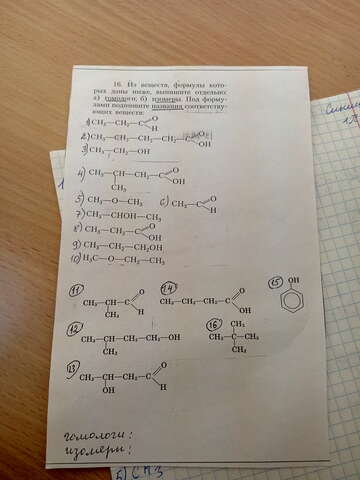 16. Из веществ, формулы кото-
рых даны ниже, выпишите отдельно:
а) гомологи; б) изомеры. Под форму-
лами подпишите названия соответству-
ющих веществ:
1) CH₃—CH₂—C O H
2) CH₃—CH₂—CH₂—CH₂—C O OH
3) CH₃—CH₂—OH
4) CH₃—CH—CH₂—C O OH
CH₃
5) CH₃—O—CH₃ 6) CH₃—C O H
7) CH₃—CHOH—CH₃
8) CH₃—CH₂—C O OH
9) CH₃—CH₂—CH₂OH
10) H₃C—O—CH₂—CH₃
11 CH₃—CH—C O H
CH₃
14 CH₃—CH₂—CH₂—C O OH
15 OH
12 CH₃—CH—CH₂—CH₂—OH
CH₃
16 CH₃
CH₃—C—CH₃
CH₃
13 CH₃—CH—CH₂—C O H
OH
гомологи:
изомеры:
Б) СПЗ